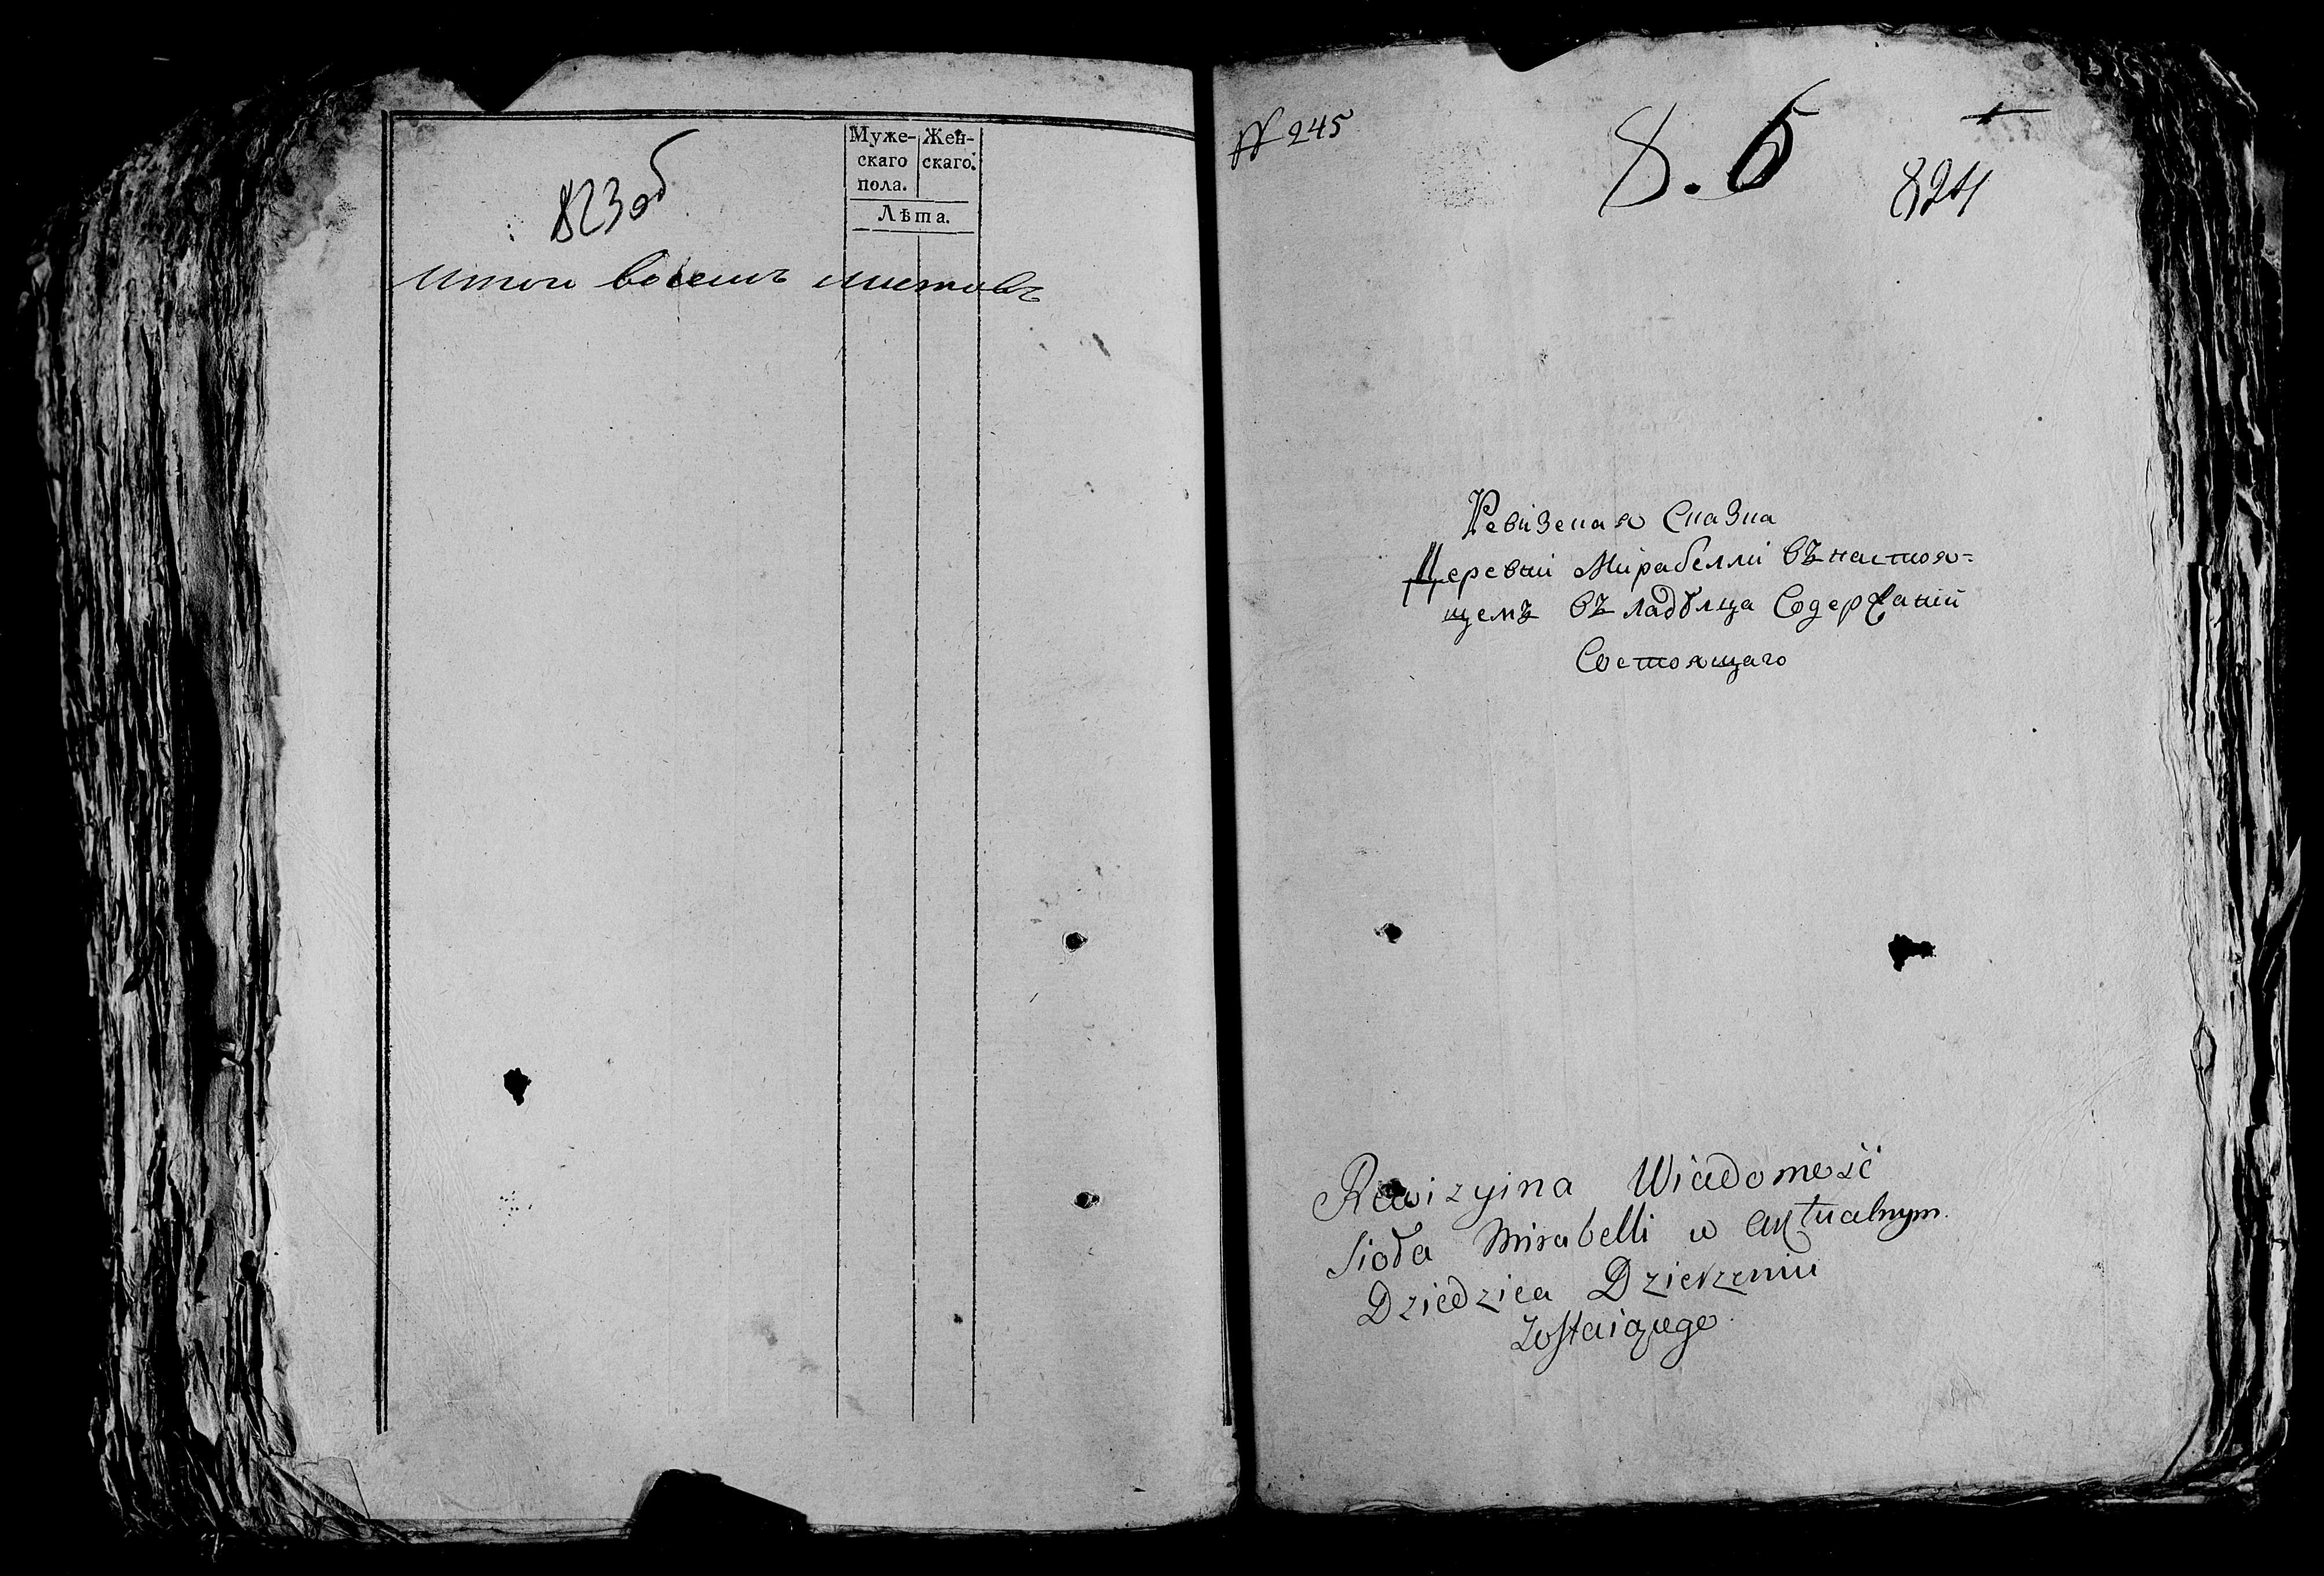 823 об
Муже-
скаго
пола.
Жен-
скаго.
Лѣта.
итого восемь листовъ
№ 245
8. б
824
Ревизская Сказка
Деревни Мирабелли въ настоя=
щемъ въ ладѣльца Содержаній
Состоящаго
Rewizyina Wiadomość
Sioła Mirabelli w Aktualnym
Dziedzica Dzierzeniu
Zostaiącego